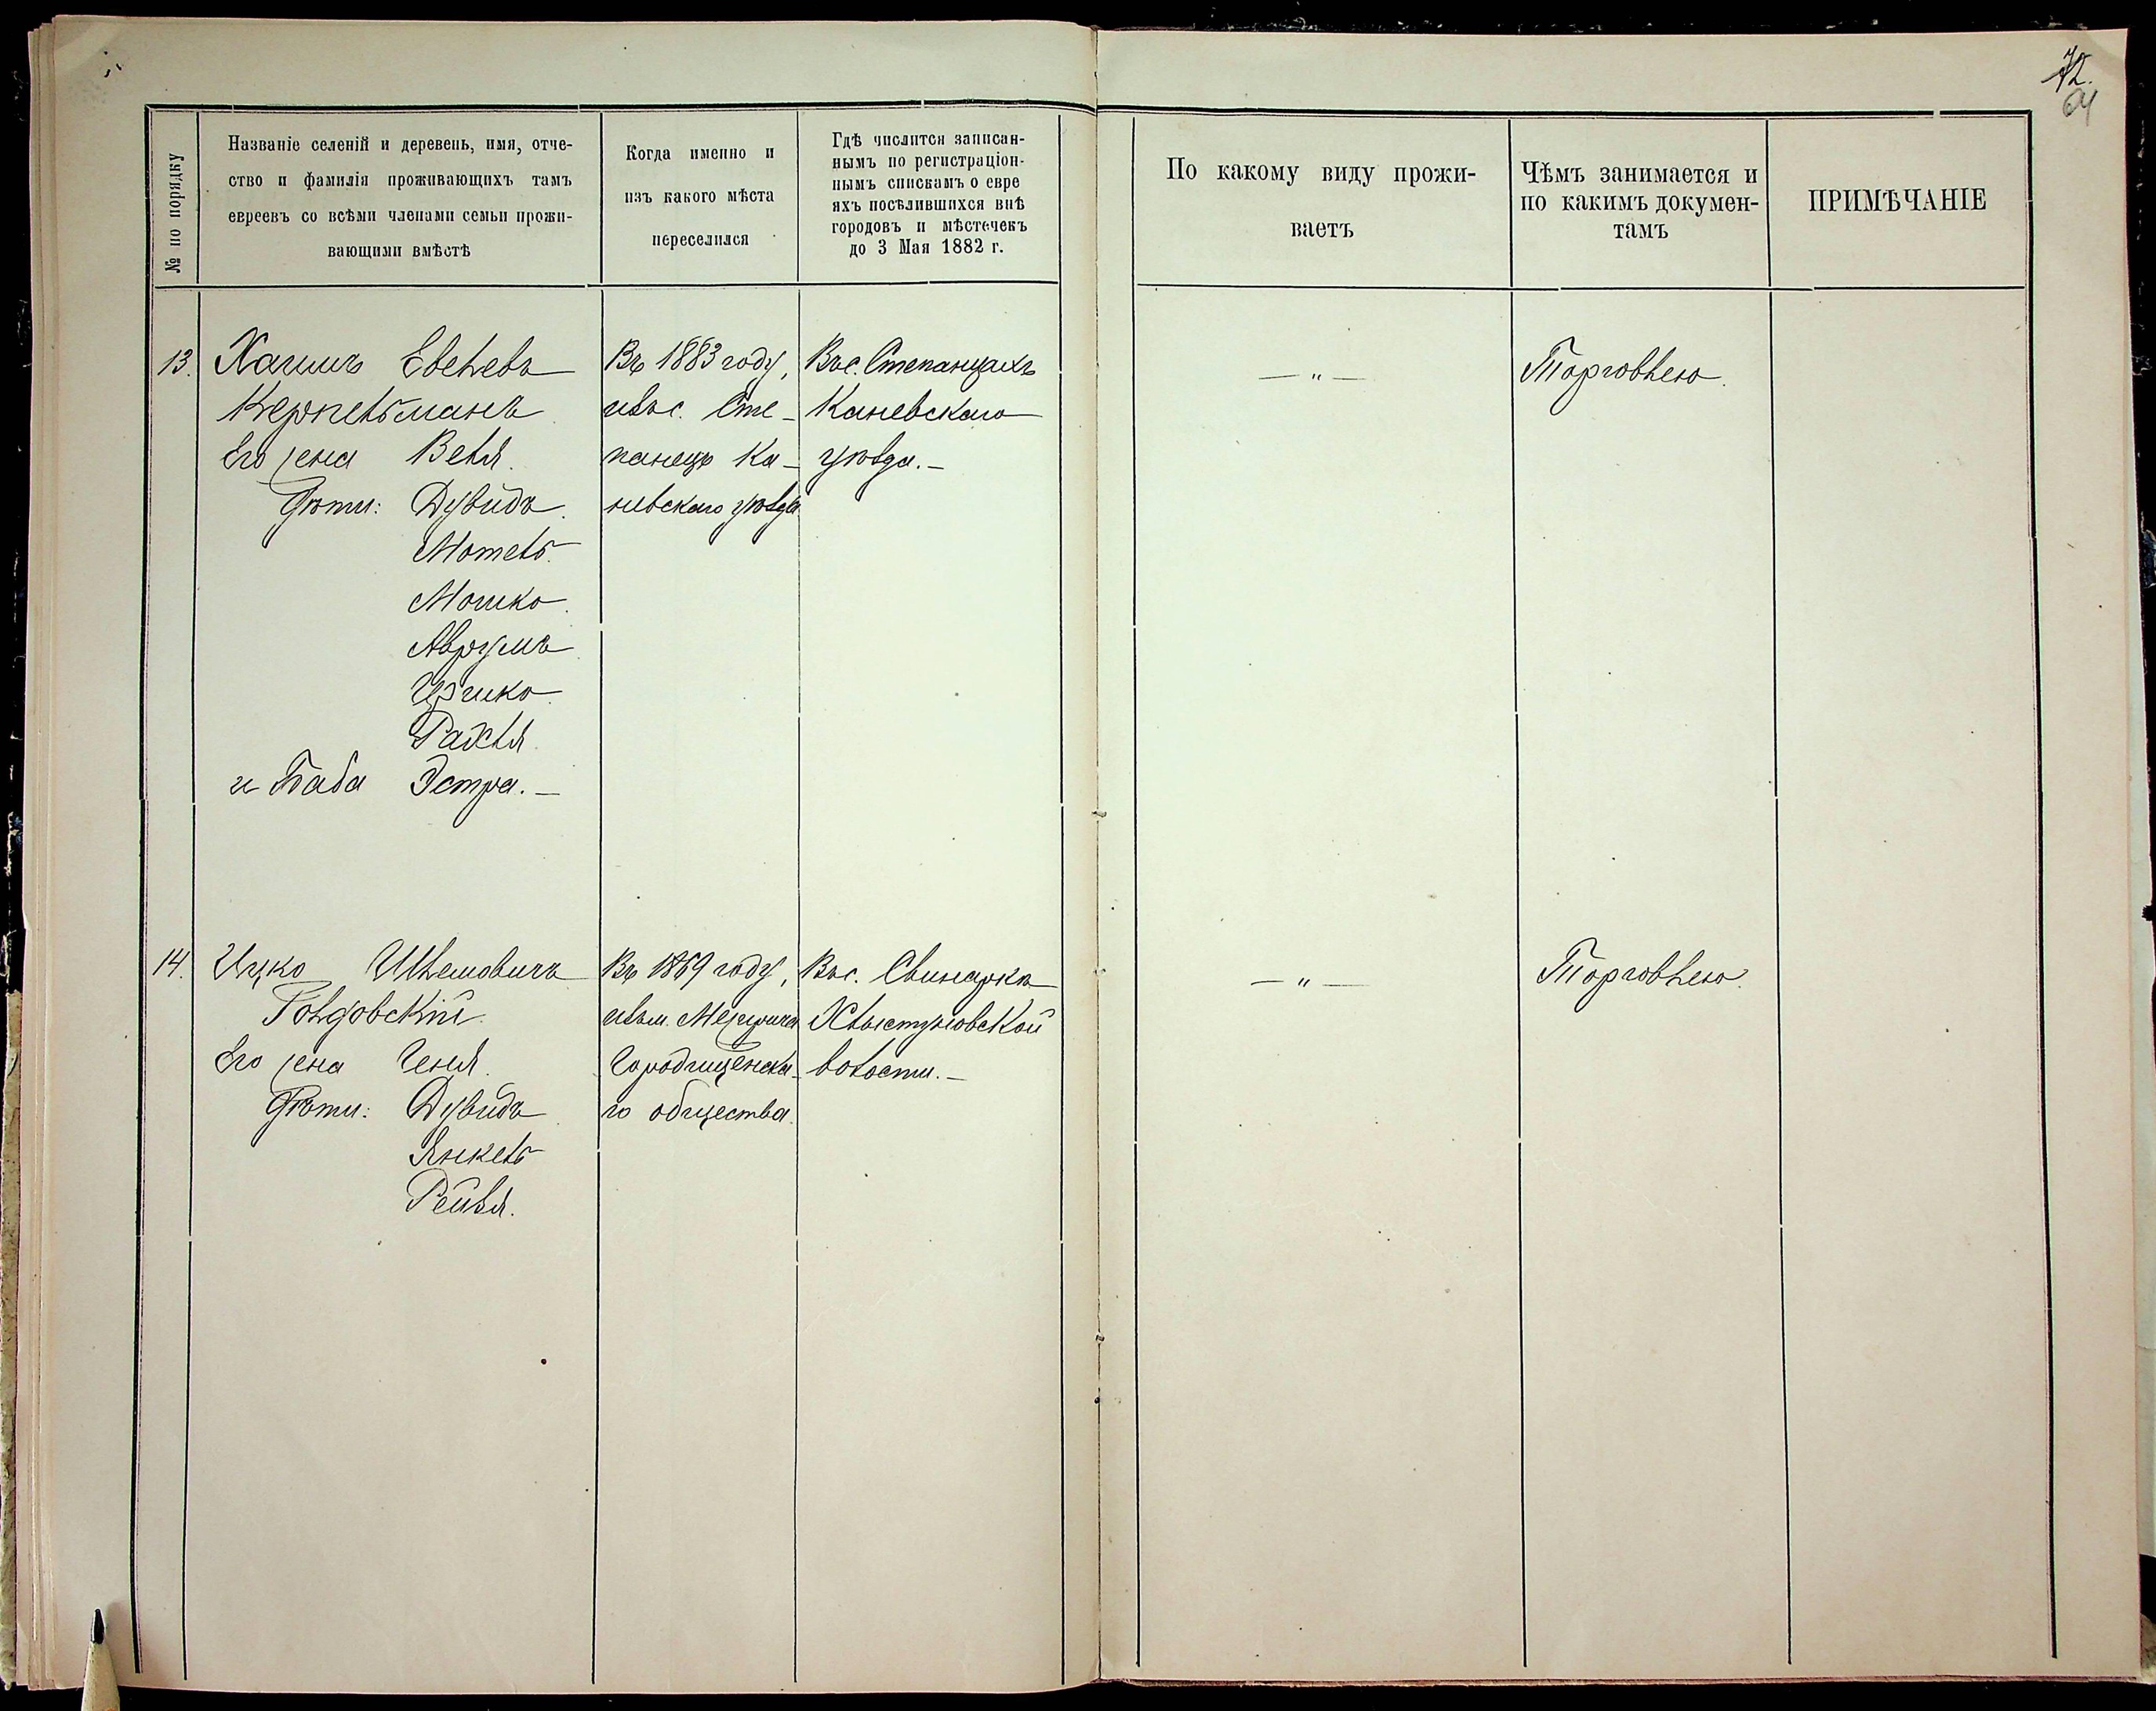 72.
64
№ по порядку
Названіе селеній и деревень, имя, отче-
ство и фамилія проживающихъ тамъ
евреевъ со всѣми членами семьи прожи-
вающими вмѣстѣ
Когда именно и
изъ какого мѣста
переселился
Гдѣ числится записан-
нымъ по регистраціон-
нымъ спискамъ о евре
яхъ посѣлившихся внѣ
городовъ и мѣстечекъ
до 3 Мая 1882 г.
По какому виду прожи-
ваетъ
Чѣмъ занимается и
по какимъ докумен-
тамъ
ПРИМѢЧАНІЕ
13. Хаимъ Евелевъ
Керпельманъ
Его жена Веля.
Дѣти: Дувидъ.
Мотель.
Мошко.
Аврумъ.
Ицико.
Рахля.
и Баба Эстра. —
Въ 1883 году,
изъ с. Сте-
панецъ Ка-
невскаго уѣзда
Въ с. Степанцахъ
Каневскаго
уѣзда. —
— „ —
Торговлею.
14. Ицко Шлемовичъ
Голдовскій.
Его жена Геня.
Дѣти: Дувидъ
Янкель
Рейзя.
Въ 1869 году,
изъ м. Межирича
Городищенска-
го общества.
Въ с. Свинаркѣ
Хлыстуновской
волости. —
— „ —
Торговлею.